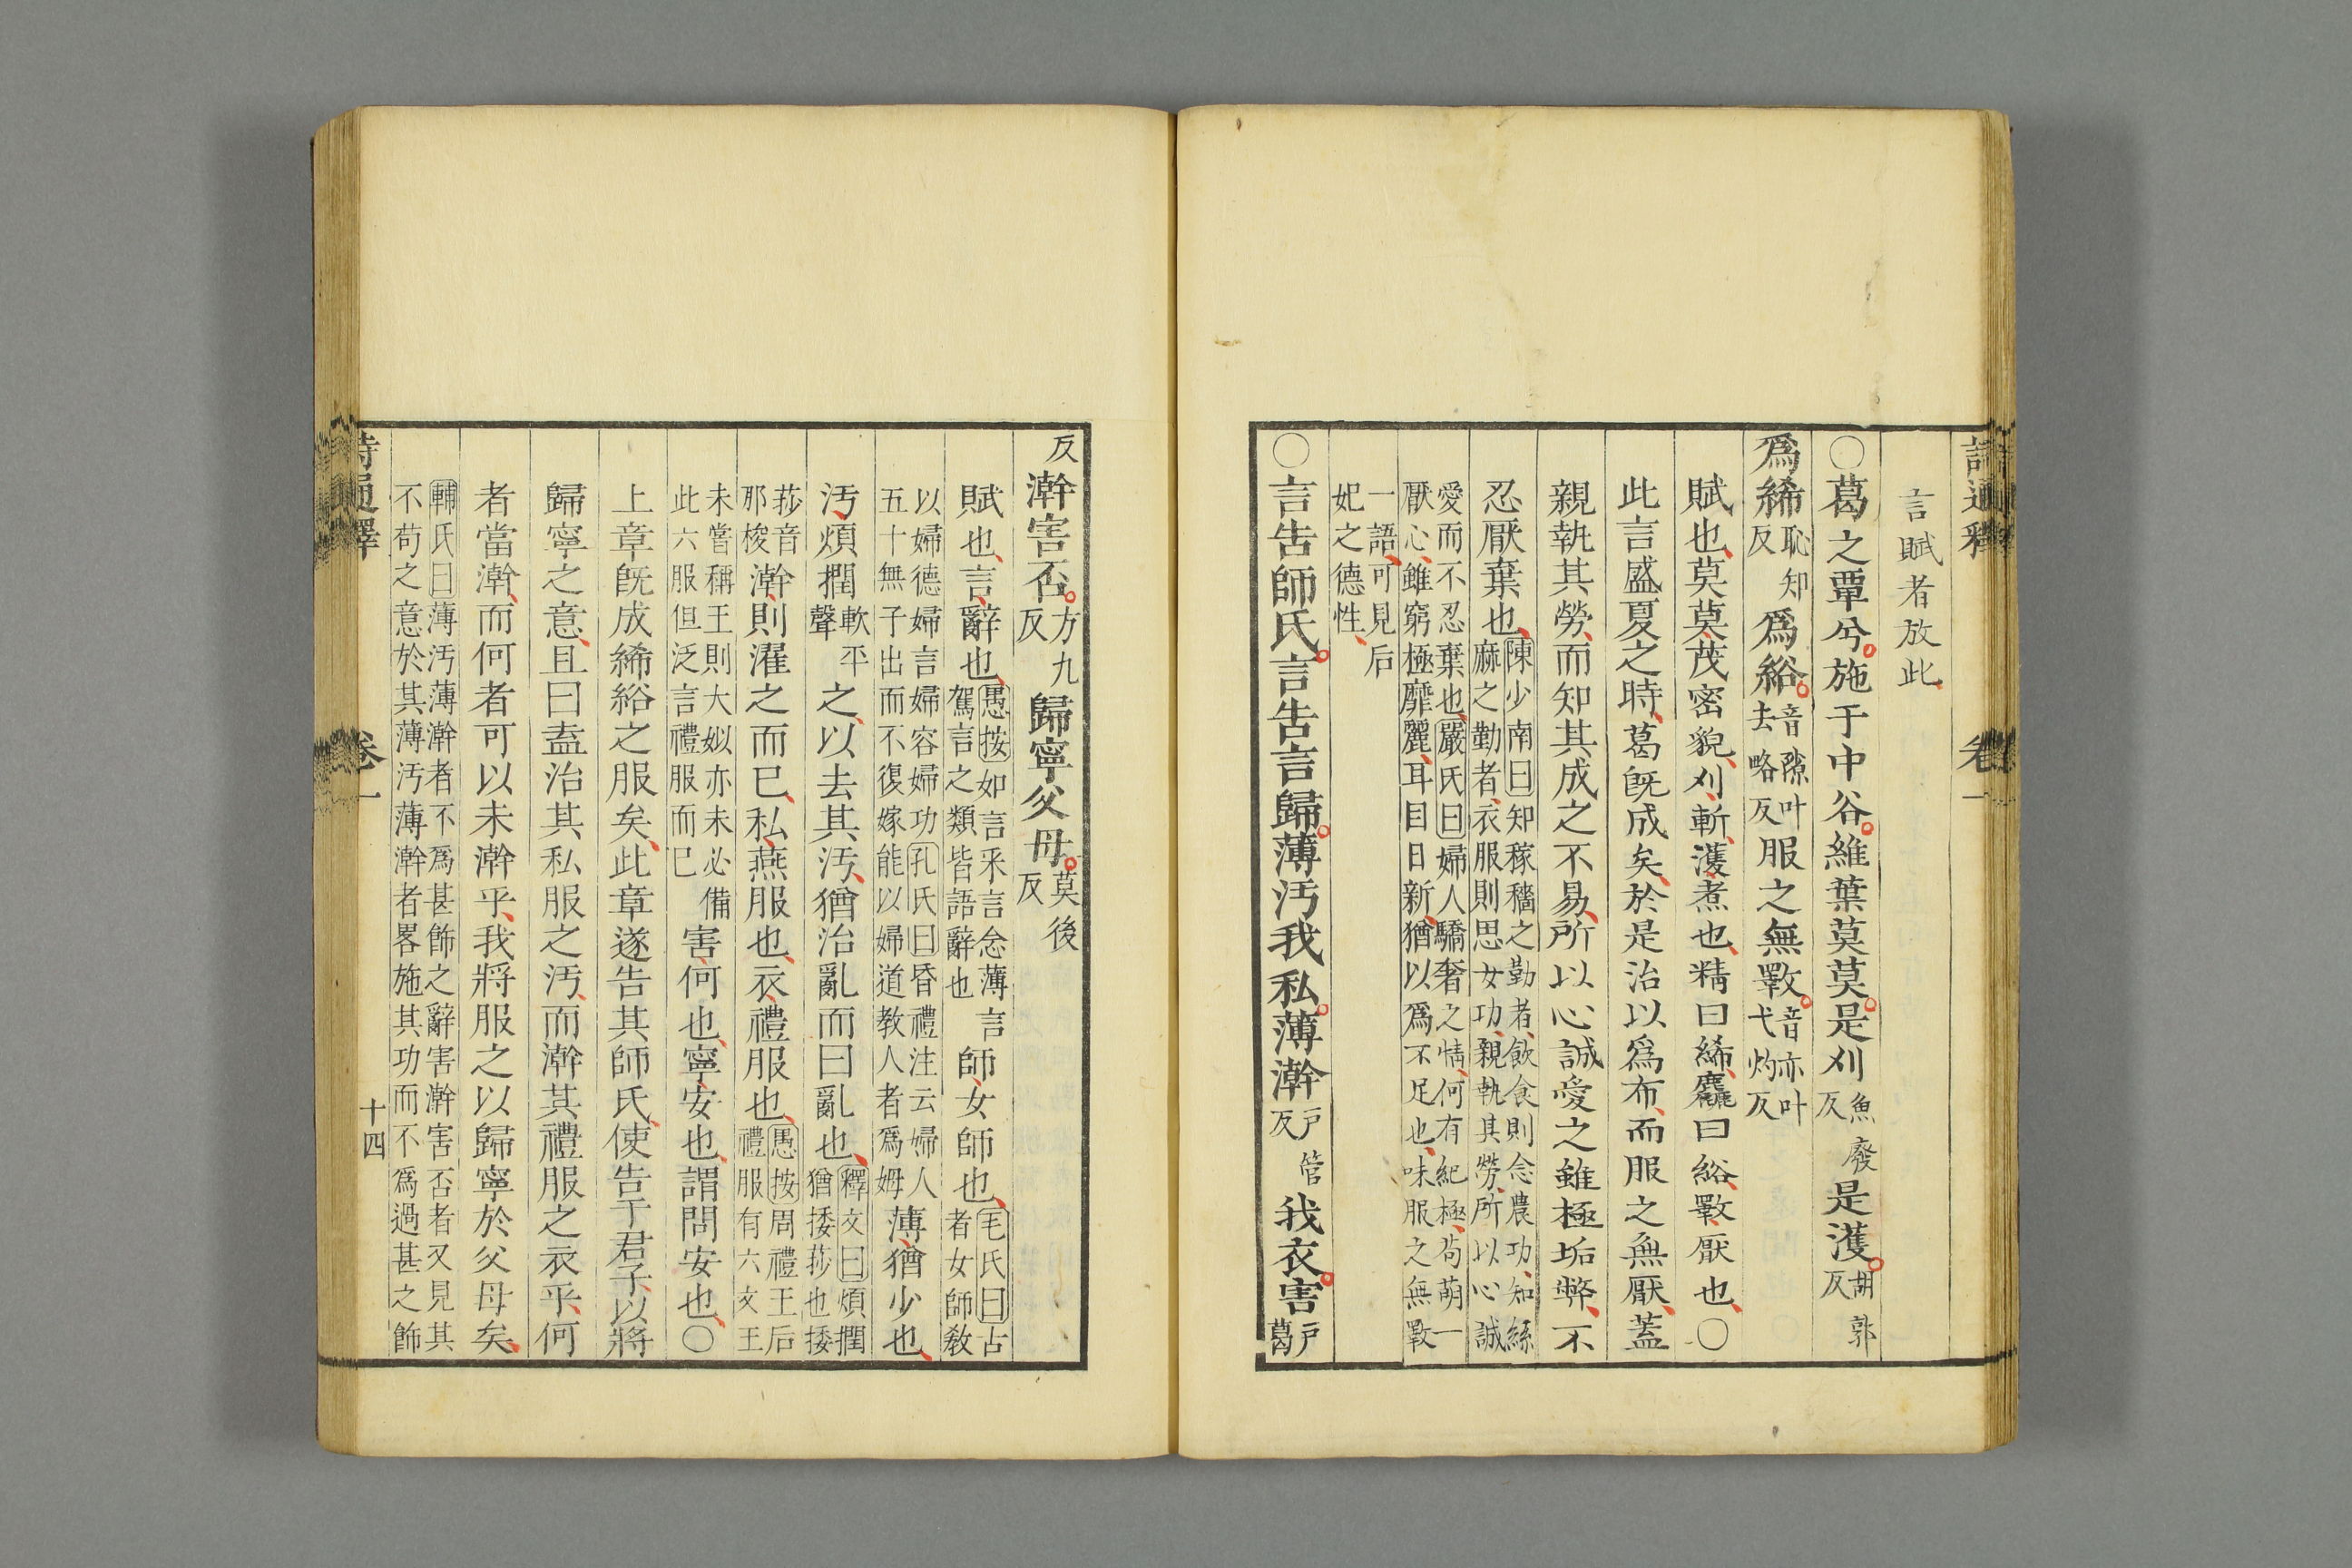 詩通釋
卷一
言賦者放此
○葛之覃兮施于中谷維葉莫莫是刈魚廢反是濩胡郭反
爲絺恥知反爲綌音隙叶去略反服之無斁音亦叶弋灼反
賦也莫莫茂密貌刈斬濩煮也精曰絺麤曰綌斁厭也○
此言盛夏之時葛旣成矣於是治以爲布而服之無厭蓋
親執其勞而知其成之不易所以心誠愛之雖極垢弊不
忍厭棄也陳少南曰知稼穡之勤者飲食則念農功知絲
麻之勤者衣服則思女功親執其勞所以心誠
愛而不忍棄也嚴氏曰婦人驕奢之情何有紀極苟萌一
厭心雖窮極靡麗耳目日新猶以爲不足也味服之無斁
一語可見后
妃之德性
○言告師氏言告言歸薄汚我私薄澣戶管反我衣害戶葛
反澣害否方九反歸寧父母莫後反
賦也言辭也愚按如言采言念薄言
駕言之類皆語辭也師女師也毛氏曰古
者女師敎
以婦德婦言婦容婦功孔氏曰昏禮注云婦人
五十無子出而不復嫁能以婦道教人者爲姆薄猶少也
汚煩撋軟平聲之以去其汚猶治亂而曰亂也釋文曰煩撋
猶捼莎也捼
莎音
那梭澣則濯之而已私燕服也衣禮服也愚按周禮王后
禮服有六文王
未嘗稱王則大姒亦未必備
此六服但泛言禮服而已害何也寧安也謂問安也○
上章旣成絺綌之服矣此章遂告其師氏使告于君子以將
歸寧之意且曰盍治其私服之汚而澣其禮服之衣乎何
者當澣而何者可以未澣乎我將服之以歸寧於父母矣
輔氏曰薄汚薄澣者不爲甚飾之辭害澣害否者又見其
不苟之意於其薄汚薄澣者畧施其功而不爲過甚之飾
詩通釋
卷一
十四